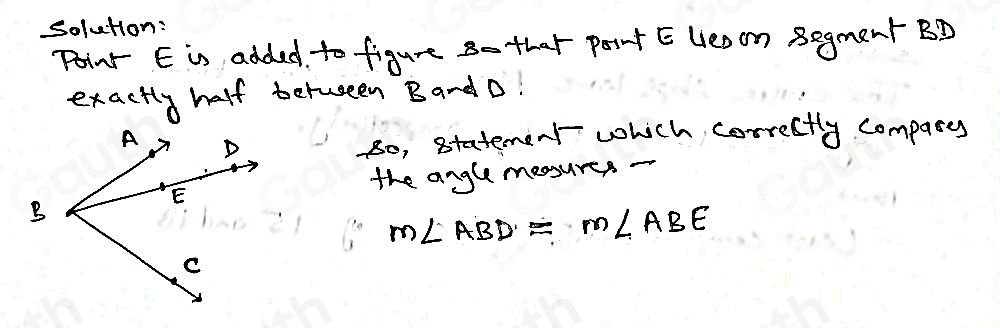 Solution:
Point E is added to figure so that point E lies on segment BD
exactly half between B and D:
A
D
E
B
C
So, statement which correctly compares
the angle measures —
m∠ABD = m∠ABE